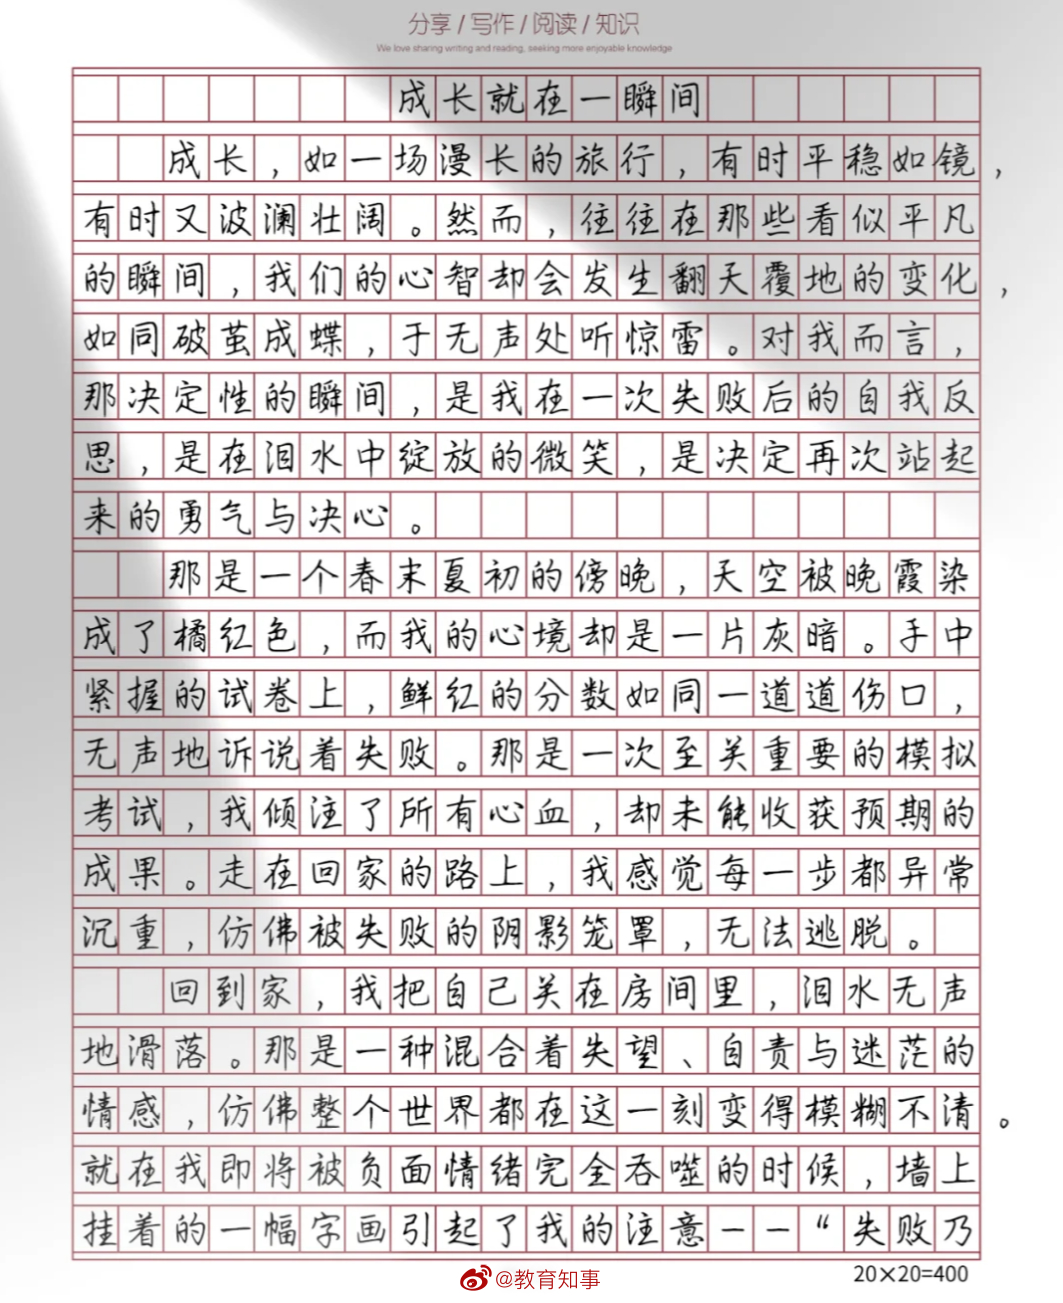 分享 / 写作 / 阅读 / 知识
We love sharing writing and reading, seeking more enjoyable knowledge
成长就在一瞬间
成长，如一场漫长的旅行，有时平稳如镜，
有时又波澜壮阔。然而，往往在那些看似平凡
的瞬间，我们的心智却会发生翻天覆地的变化，
如同破茧成蝶，于无声处听惊雷。对我而言，
那决定性的瞬间，是我在一次失败后的自我反
思，是在泪水中绽放的微笑，是决定再次站起
来的勇气与决心。
那是一个春末夏初的傍晚，天空被晚霞染
成了橘红色，而我的心境却是一片灰暗。手中
紧握的试卷上，鲜红的分数如同一道道伤口，
无声地诉说着失败。那是一次至关重要的模拟
考试，我倾注了所有心血，却未能收获预期的
成果。走在回家的路上，我感觉每一步都异常
沉重，仿佛被失败的阴影笼罩，无法逃脱。
回到家，我把自己关在房间里，泪水无声
地滑落。那是一种混合着失望、自责与迷茫的
情感，仿佛整个世界都在这一刻变得模糊不清。
就在我即将被负面情绪完全吞噬的时候，墙上
挂着的一幅字画引起了我的注意——“失败乃
20×20=400
@教育知事